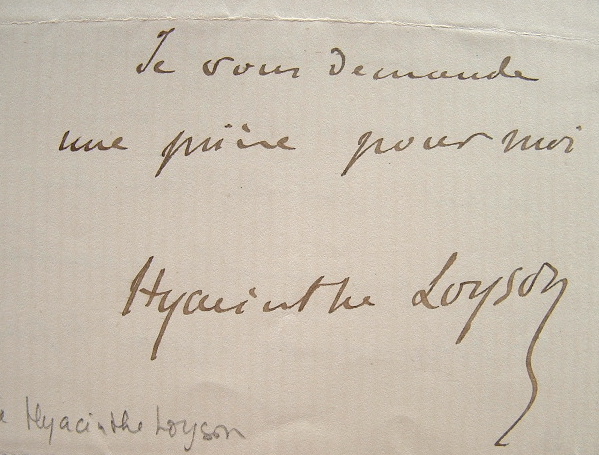 Je vous demande
une prière pour moi
Hyacinthe Loyson
Hyacinthe Loyson